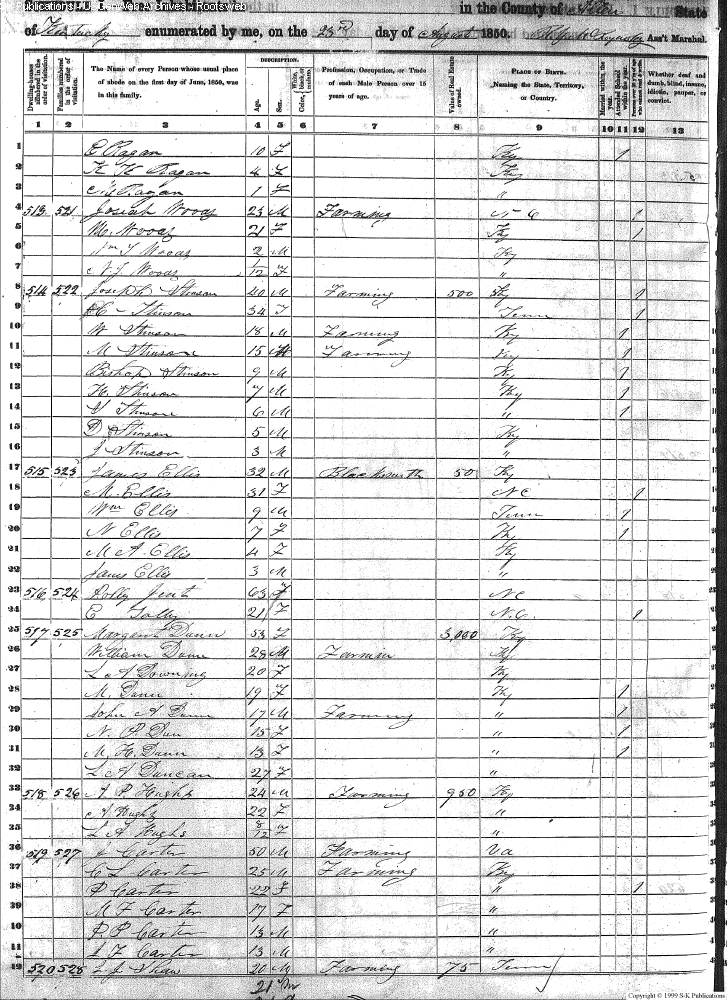 Publications USGenWeb Archives - Rootsweb
in the County of Allen State
of Kentucky enumerated by me, on the 23rd day of August 1850. Ass't Marshal.
Dwelling-houses numbered in the order of visitation. Families numbered in the order of visitation. The Name of every Person whose usual place of abode on the first day of June, 1850, was in this family. DESCRIPTION. Age. Sex. Color, White, black, or mulatto. Profession, Occupation, or Trade of each Male Person over 15 years of age. Value of Real Estate owned. PLACE OF BIRTH. Naming the State, Territory, or Country. Married within the year. Attended School within the year. Whether deaf and dumb, blind, insane, idiotic, pauper, or convict.
1 2 3 4 5 6 7 8 9 10 11 12 13
1 E Ragan 10 F Ky 1
2 K K Ragan 4 F Ky
3 Ragan 1 F "
4 513 521 Josiah Woods 23 M Farming N C 1
5 M. Woods 21 F Ky 1
6 Wm T Woods 2 M Ky
7 N. J. Woods 1/12 F "
8 514 522 Joseph Stinson 40 M Farming 500 Ky 1
9 C Stinson 34 F Tenn 1
10 W Stinson 18 M Farming Ky 1
11 M Stinson 15 M Farming Ky 1
12 Bishop Stinson 9 M Ky 1
13 H. Stinson 7 M Ky 1
14 Stinson 6 M " 1
15 D Stinson 5 M Ky
16 J Stinson 3 M "
17 515 523 James Ellis 32 M Blacksmith 50 Ky
18 M. Ellis 31 F NC 1
19 Wm Ellis 9 M Tenn 1
20 N Ellis 7 F Ky 1
21 M A. Ellis 4 F Ky
22 James Ellis 3 M "
23 516 524 Polly Jent 63 F NC
24 E Tolly 21 F N.C. 1
25 517 525 Margaret Dunn 53 F 3,000 Ky
26 William Dunn 28 M Farmin Ky
27 L A Downing 20 F Ky
28 M. Dunn 19 F Ky 1
29 John A Dunn 17 M Farming " 1
30 N. P. Dun 15 F " 1
31 M. H. Dunn 13 F " 1
32 L A Duncan 27 F "
33 518 526 A P Hughs 24 M Farming 950 Ky
34 A Hughs 22 F "
35 L A Hughs 8/12 F "
36 519 527 J Carter 50 M Farming Va
37 C L Carter 25 M Farming Ky
38 P Carter 22 F " 1
39 M F Carter 17 F "
P P Carter 13 M "
F Carter 13 M "
520 528 L J Shaw 20 M Farming 75 Tenn
21 M
Copyright © 1999 S-K Publications